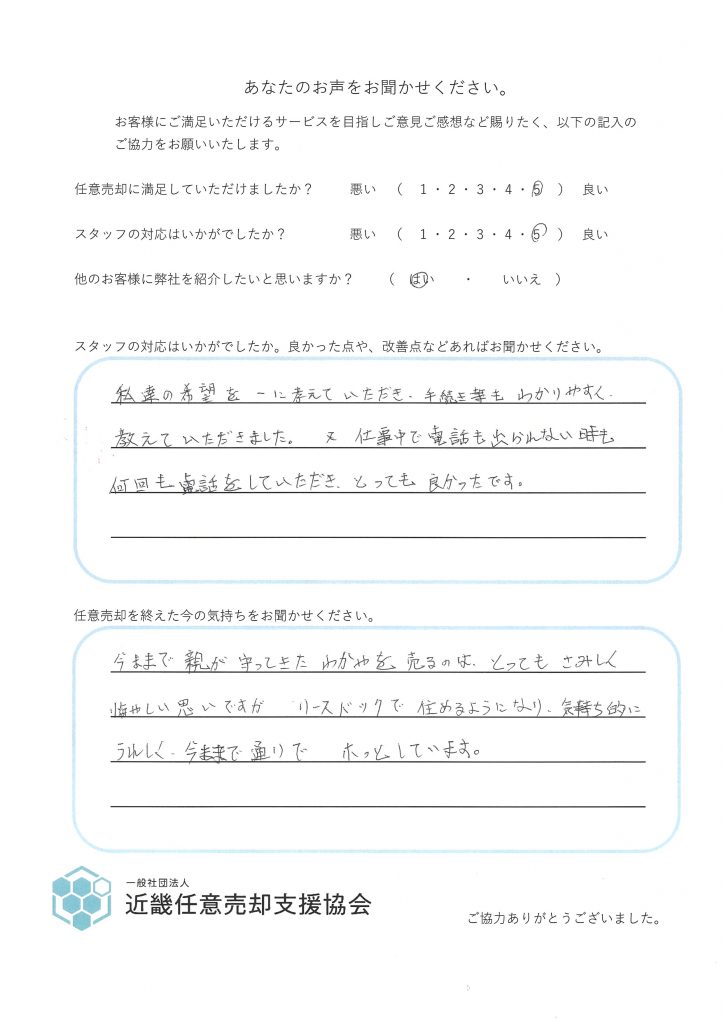 あなたのお声をお聞かせください。
お客様にご満足いただけるサービスを目指しご意見ご感想など賜りたく、以下の記入の
ご協力をお願いいたします。
任意売却に満足していただけましたか？ 悪い （ 1・2・3・4・5 ） 良い
スタッフの対応はいかがでしたか？ 悪い （ 1・2・3・4・5 ） 良い
他のお客様に弊社を紹介したいと思いますか？ （ はい ・ いいえ ）
スタッフの対応はいかがでしたか。良かった点や、改善点などあればお聞かせください。
私達の希望を一に考えていただき、手続き等もわかりやすく、
教えていただきました。 又 仕事中で電話も出られない時も
何回も電話をしていただき、とっても良かったです。
任意売却を終えた今の気持ちをお聞かせください。
今ままで親が守ってきたわがやを売るのは、とってもさみしく
悔やしい思いですが リースバックで住めるようになり、気持ち的に
うれしく、今ままで通りで ホッとしています。
一般社団法人
近畿任意売却支援協会
ご協力ありがとうございました。